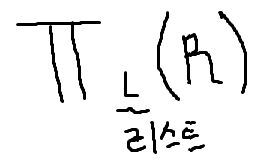 π L (R)
리스트